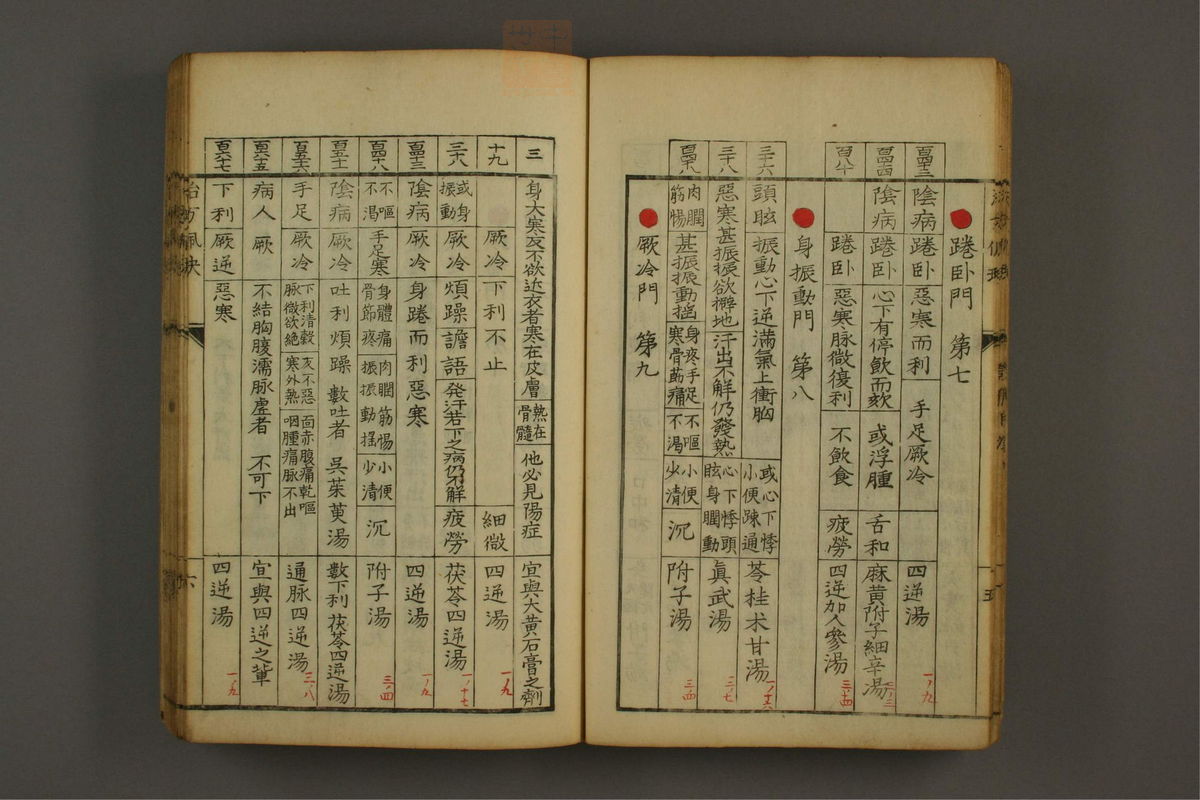 蜷卧門 第七
百四十三 陰病 蜷卧 惡寒而利 手足厥冷 四逆湯
百四十四 陰病 蜷卧 心下有停飮而欬 或浮腫 舌和 麻黄附子細辛湯
百八十 蜷卧 惡寒脉微復利 不飮食 疲勞 四逆加人參湯
身振動門 第八
三十六 頭眩 振動心下逆滿氣上衝胸 或心下悸小便踈通 苓桂朮甘湯
三十八 惡寒甚振振欲擗地 汗出不解仍發熱 心下悸頭眩身瞤動 眞武湯
百四十八 肉瞤筋惕 甚振振動揺 身疼手足寒骨節痛 不嘔不渴 小便少清 沉 附子湯
厥冷門 第九
三 身大寒反不欲近衣者寒在皮膚 熱在骨髓 他必見陽症 宜與大黄石膏之劑
十九 厥冷 下利不止 細微 四逆湯
三十八 或身振動 厥冷 煩躁 譫語 発汗若下之病仍不解 疲勞 茯苓四逆湯
百四十三 陰病 厥冷 身蜷而利 惡寒 四逆湯
百四十八 不嘔不渴 手足寒 身體痛骨節疼 肉瞤筋惕振振動揺 小便少清 沉 附子湯
百五十一 陰病 厥冷 吐利煩躁 數吐者 呉茱萸湯 數下利 茯苓四逆湯
百五十六 手足 厥冷 下利清穀脉微欲絶 反不惡寒外熱 面赤腹痛乾嘔咽腫痛脉不出 通脉四逆湯
百六十五 病人 厥 不結胸腹濡脉虚者 不可下 宜與四逆之軰
百六十七 下利 厥逆 惡寒 四逆湯
六